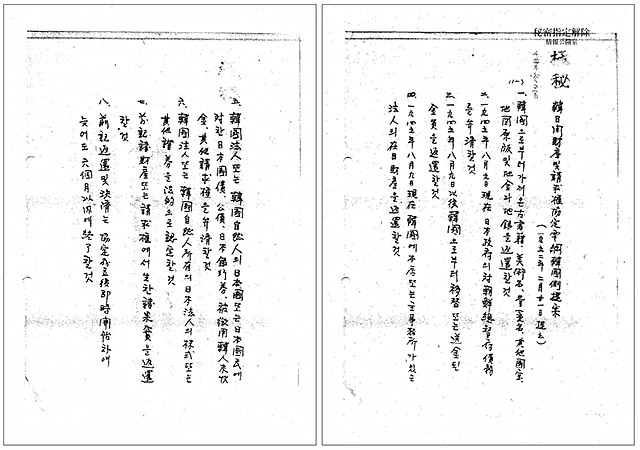 秘密指定解除
情報公開室
極秘
韓日間財産및請求權協定要綱韓國側提案
一. 韓國으로부터가져온古書籍、美術品、骨董品、其他國宝、
地図原版및地金과地銀을返還할것
二. 一九四五年八月九日現在日本政府의対朝鮮總督府債務
를弁濟할것
三. 一九四五年八月九日以後韓國으로부터移替또는送金된
金員을返還할것
四. 一九四五年八月九日現在韓國에本店또는主事務所가있는
法人의在日財産을返還할것
五. 韓國法人또는韓國自然人의日本國또는日本國民에
対한日本國債、公債、日本銀行券、被徵用韓人未收
金、其他請求權을弁濟할것
六. 韓國法人또는韓國自然人所有의日本法人의株式또는
其他證券을法的으로認定할것
七. 前記諸財産또는請求權에서生한諸果實을返還
할것
八. 前記返還및決済는協定成立後即時開始하여
늦어도六個月以内에終了할것